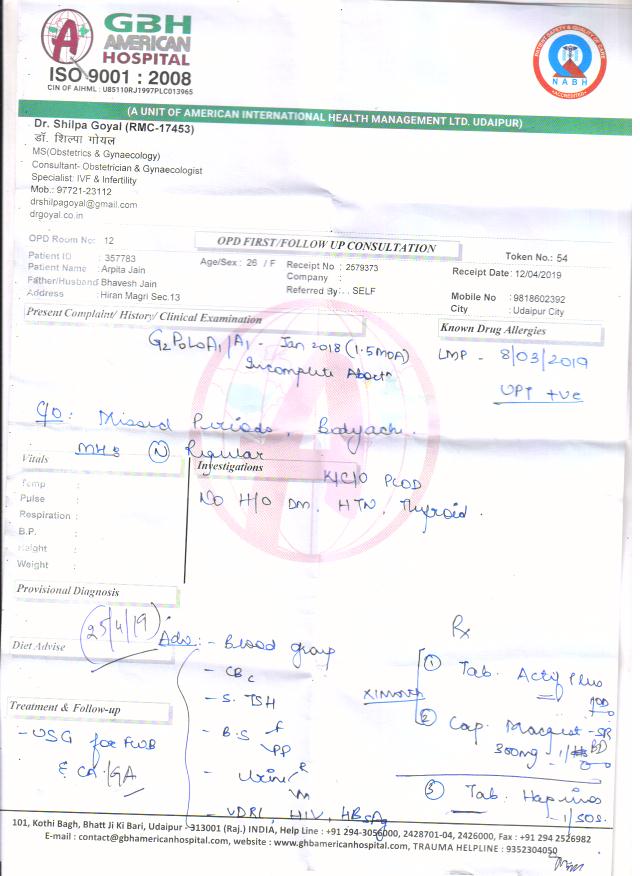 GBH
AMERICAN
HOSPITAL
ISO 9001 : 2008
CIN OF AIHML : U85110RJ1997PLC013965
PATIENT SAFETY & QUALITY OF CARE
NABH
ACCREDITED
(A UNIT OF AMERICAN INTERNATIONAL HEALTH MANAGEMENT LTD. UDAIPUR)
Dr. Shilpa Goyal (RMC-17453)
डॉ. शिल्पा गोयल
MS(Obstetrics & Gynaecology)
Consultant- Obstetrician & Gynaecologist
Specialist: IVF & Infertility
Mob.: 97721-23112
drshilpagoyal@gmail.com
drgoyal.co.in
OPD Room No: 12
OPD FIRST/FOLLOW UP CONSULTATION
Token No.: 54
Patient ID : 357783
Age/Sex : 26 / F
Receipt No : 2579373
Receipt Date: 12/04/2019
Patient Name : Arpita Jain
Company :
Father/Husband Bhavesh Jain
Referred By: . SELF
Mobile No : 9818602392
Address : Hiran Magri Sec.13
City : Udaipur City
Present Complaint/ History/ Clinical Examination
Known Drug Allergies
G2P0L0A1/A1 - Jan 2018 (1.5MOA)
Incomplete Abortn
LMP - 8/03/2019
UPT +ve
C/O: Missed Periods, Bodyach.
MHs (N) Regular
Vitals
Investigations
K/C/O PCOD
No H/O DM, HTN, Thyroid.
Temp :
Pulse :
Respiration :
B.P. :
Height :
Weight :
Provisional Diagnosis
25/4/19
Diet Advise
Adv:- Blood group
- CBC
- S. TSH
- B.S F
PP
- Urine R
M
- VDRL, HIV, HBsAg
Rx
① Tab. Plus
OD
② Cap. -SR
300mg - 1 BD
③ Tab.
- 1/SOS.
Treatment & Follow-up
- USG for FWB
& CA/GA
101, Kothi Bagh, Bhatt Ji Ki Bari, Udaipur - 313001 (Raj.) INDIA, Help Line : +91 294-3056000, 2428701-04, 2426000, Fax : +91 294 2526982
E-mail : contact@gbhamericanhospital.com, website : www.gbhamericanhospital.com, TRAUMA HELPLINE : 9352304050